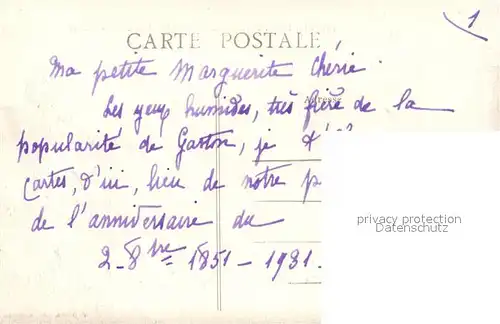 1
CARTE POSTALE
Ma petite Marguerite Chérie
Les yeux humides, très fière de la
popularité de Gaston, je
cartes, d'ici, lieu de notre p
de l'anniversaire du
2-8bre 1851-1931.
privacy protection
Datenschutz